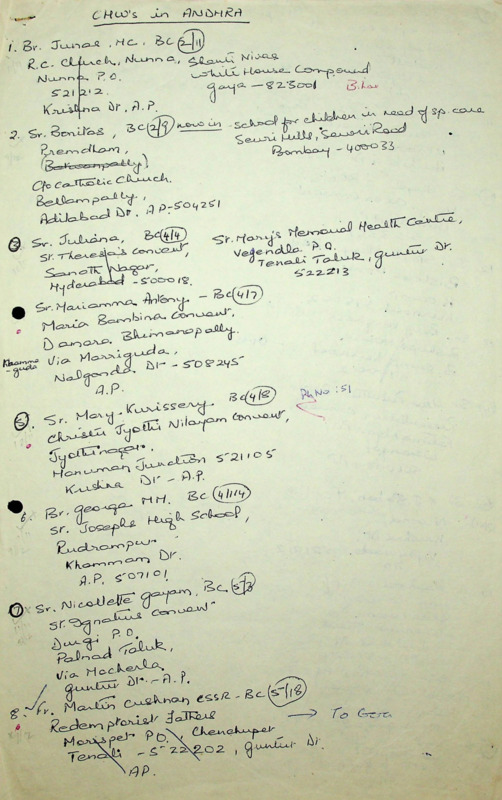 CHW's in ANDHRA
1. Br. Junas, MC. BC 2/11
R.C. Church, Nunna, Shanti Nivas
Nunna P.O. White House Compound
521212 Gaya - 823001 Bihar
Krishna Dt, A.P.
2. Sr. Bonitas, BC 2/9 now in - School for children in need of sp. care
Premdham, Sewri Hills, Sewri Road
Bombay - 400033
C/o Catholic Church.
Bellampally,
Adilabad Dt. AP-504251
3 Sr. Juliana, BC 4/4 St. Mary's Memorial Health Centre,
St. Theresa's Convent, Vegendla P.O.
Sanath Nagar, Tenali Taluk, Guntur Dt.
Hyderabad - 500018. 522213
Sr. Mariamma Antony - BC 4/7
Maria Bambina Convent,
Damara Bhimanapally.
Via Marriguda,
Nalgonda Dt - 508245
A.P.
5. Sr. Mary Kurissery BC 4/8 Ph No: 51
Christu Jyothi Nilayam Convent,
Jyothinagar.
Hanuman Junction 521105
Krishna Dt - A.P.
6. Br. George MM. BC 4/114
St. Josephs High School,
Rudrampur
Khammam Dt.
A.P. 507101
7 Sr. Nicollette Gayam, BC 5/3
St. Ignatius Convent
Durgi P.O.
Palnad Taluk,
Via Macherla
Guntur Dt. - A.P.
8. Fr. Martin Cushnan CSSR - BC 5/18
Redemptorist Fathers → To Gera
Morispet P.O., Chenchupet
Tenali - 522202, Guntur Dt.
AP.